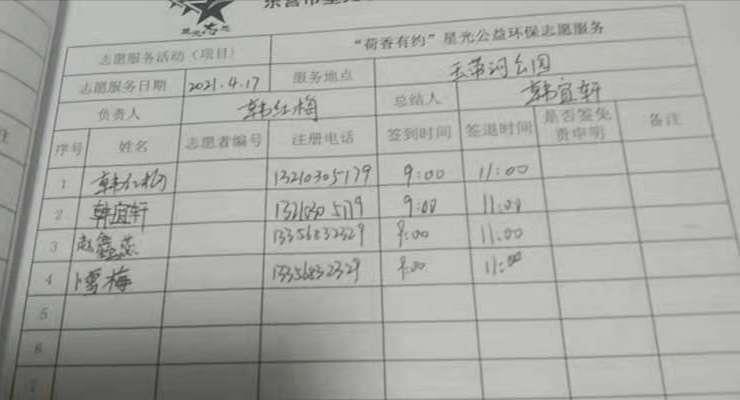 东营市星光
志愿服务活动（项目） “荷香有约”星光公益环保志愿服务
志愿服务日期 2021.4.17 服务地点 玉带河公园
负责人 韩红梅 总结人 韩宜轩
序号 姓名 志愿者编号 注册电话 签到时间 签退时间 是否签免责申明 备注
1 韩红梅 13210305179 9:00 11:00
2 韩宜轩 13210305179 9:00 11:00
3 赵鑫蕊 13356832329 9:00 11:00
4 梅 13356832329 9:00 11:00
5
6
7